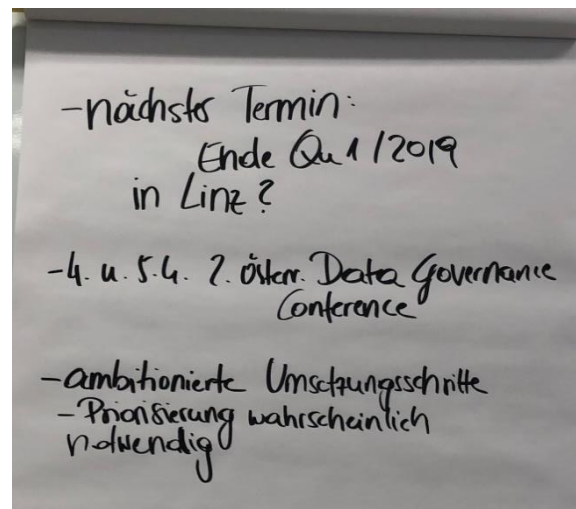 - nächster Termin:
Ende Qu 1 / 2019
in Linz?
- 4. u. 5.4. 2. österr. Data Governance
Conference
- ambitionierte Umsetzungsschritte
- Priorisierung wahrscheinlich
notwendig